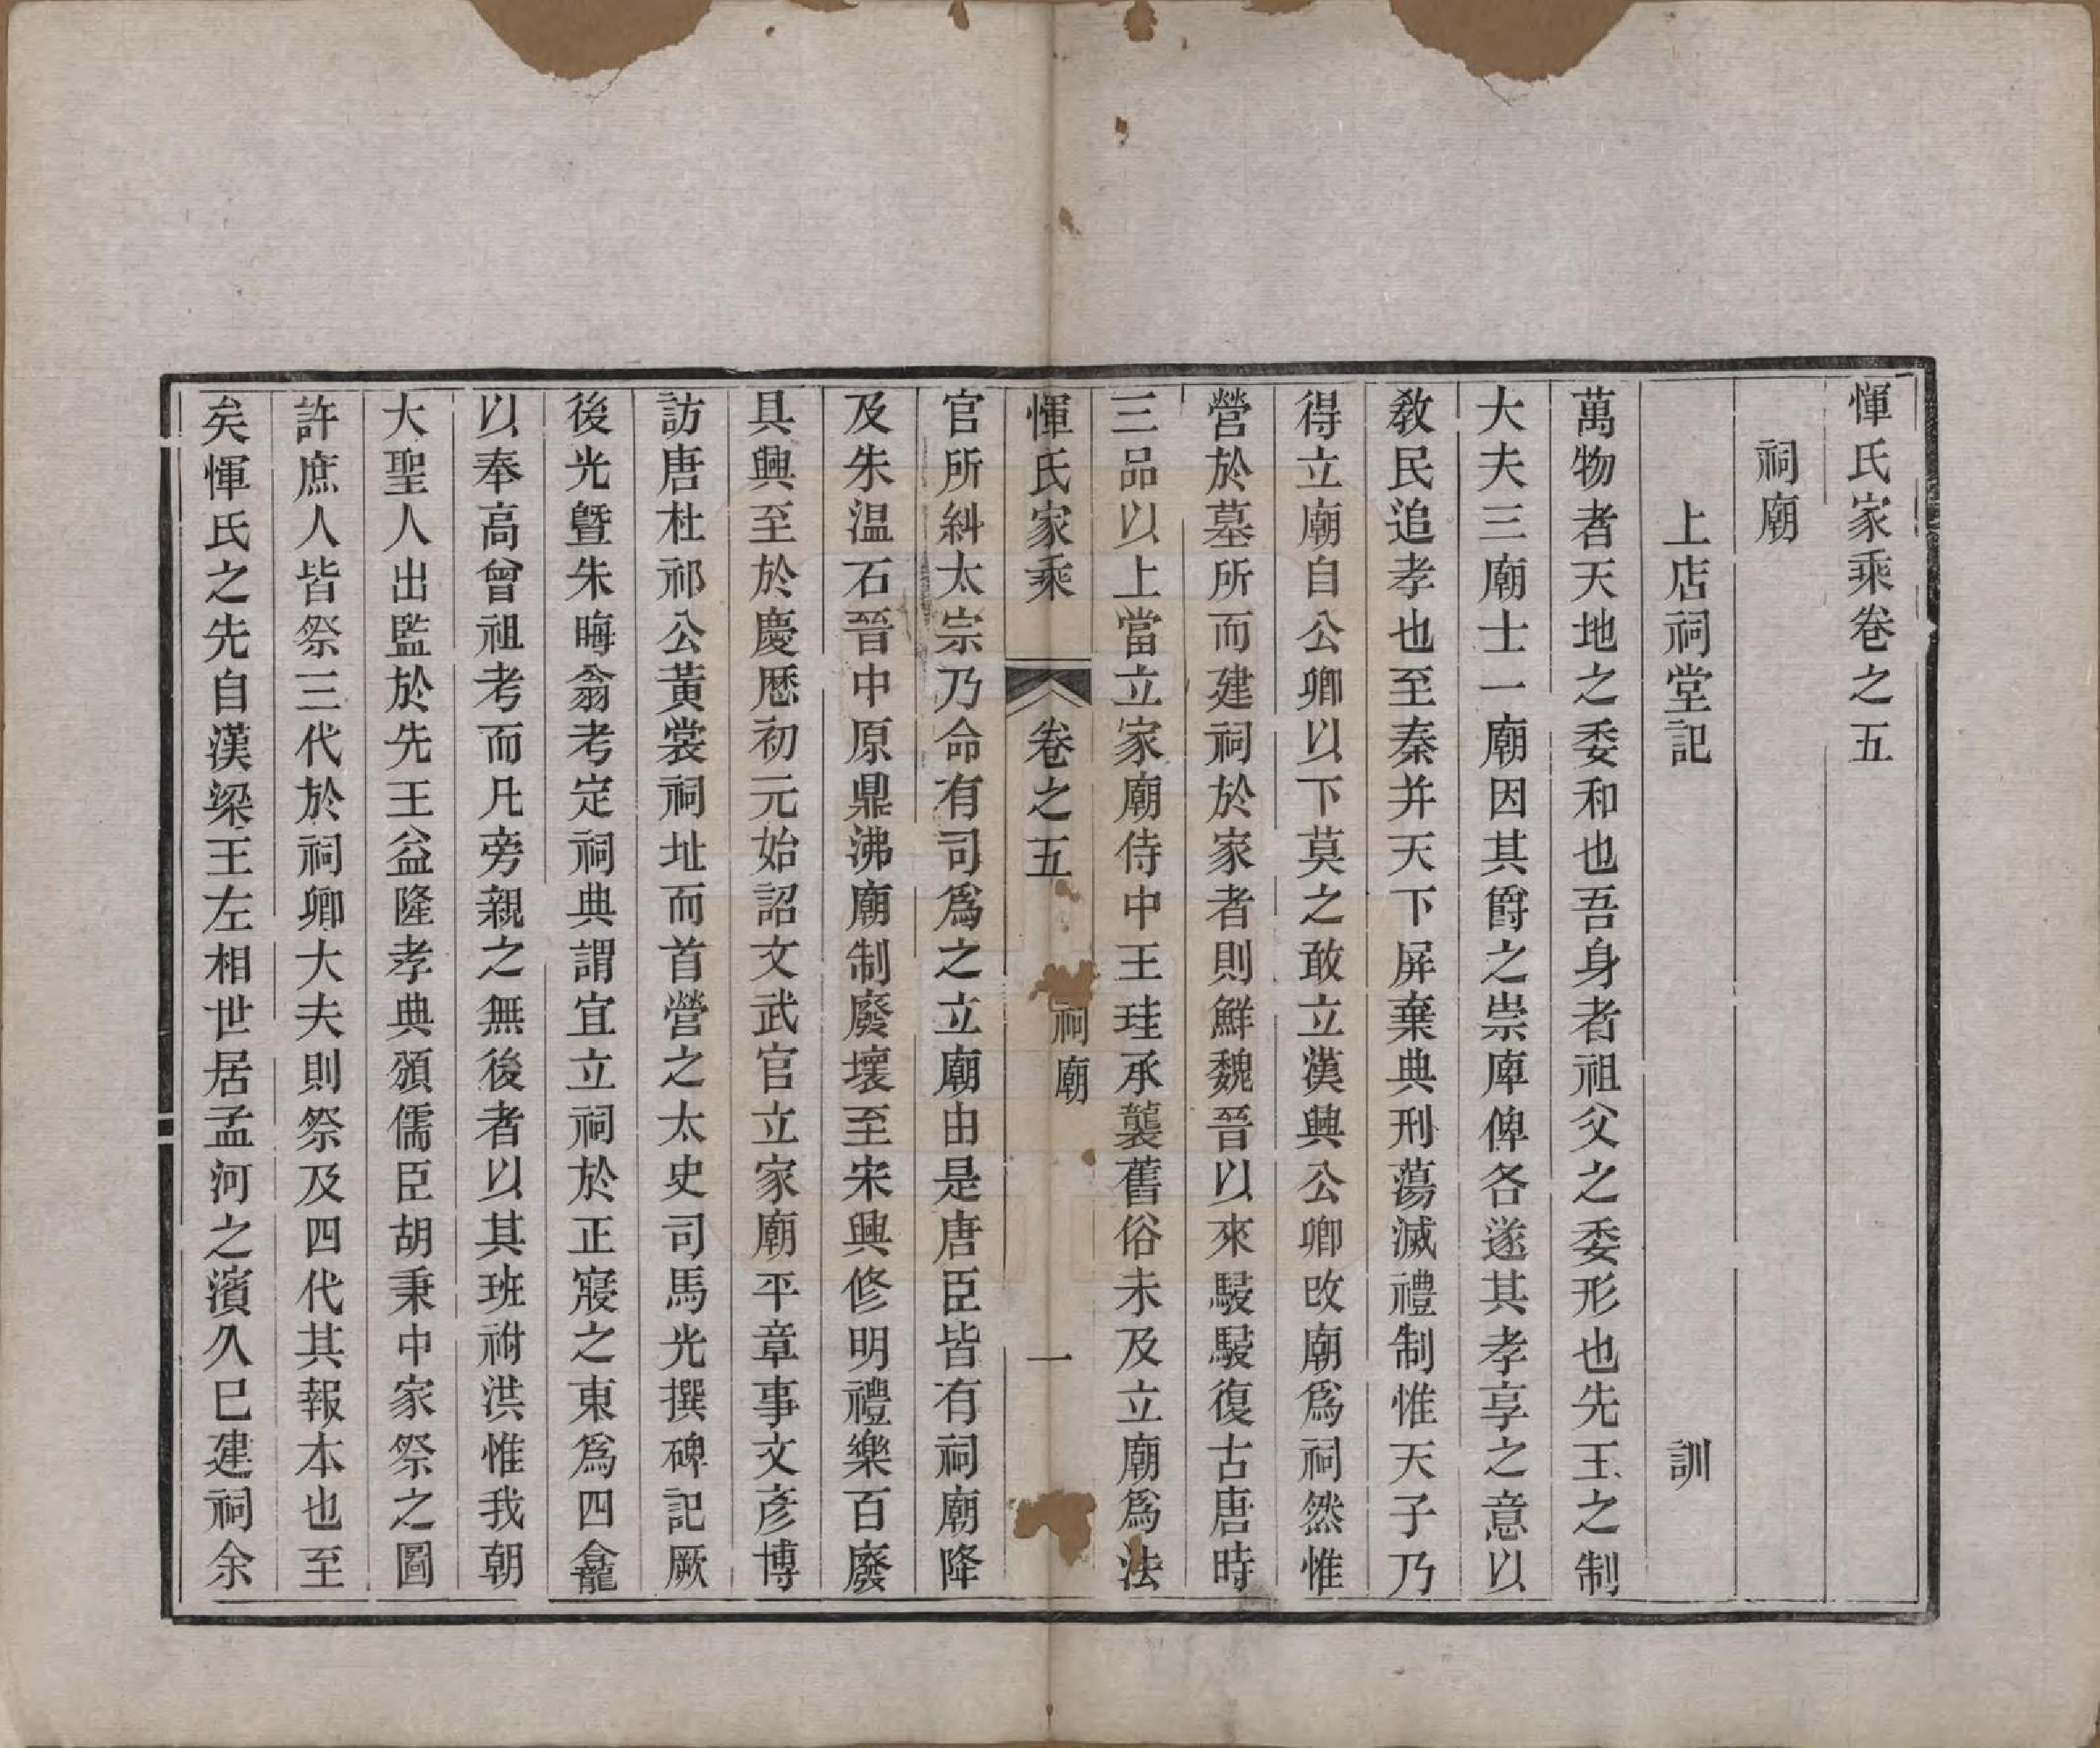 惲氏家乘卷之五
祠廟
上店祠堂記　訓
萬物者天地之委和也吾身者祖父之委形也先王之制
大夫三廟士一廟因其爵之崇庳俾各遂其孝享之意以
敎民追孝也至秦并天下屏棄典刑蕩滅禮制惟天子乃
得立廟自公卿以下莫之敢立漢興公卿改廟爲祠然惟
營於墓所而建祠於家者則鮮魏晉以來駸駸復古唐時
三品以上當立家廟侍中王珪承襲舊俗未及立廟爲法
惲氏家乘　卷之五　祠廟　一
官所糾太宗乃命有司爲之立廟由是唐臣皆有祠廟降
及朱温石晉中原鼎沸廟制廢壞至宋興修明禮樂百廢
具興至於慶厯初元始詔文武官立家廟平章事文彥博
訪唐杜祁公黃裳祠址而首營之太史司馬光撰碑記厥
後光曁朱晦翁考定祠典謂宜立祠於正寢之東爲四龕
以奉高曾祖考而凡旁親之無後者以其班祔洪惟我朝
大聖人出監於先王益隆孝典頒儒臣胡秉中家祭之圖
許庶人皆祭三代於祠卿大夫則祭及四代其報本也至
矣惲氏之先自漢梁王左相世居孟河之濱久巳建祠余